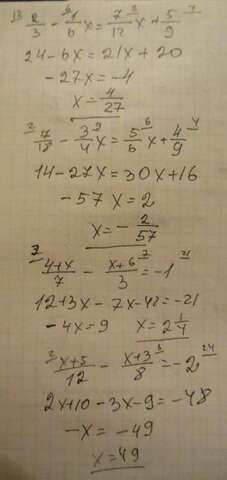 12 2/3 - 1/6 ⁶ x = 7/12 ³ x + 5/9 ⁴
24 - 6x = 21x + 20
-27x = -4
x = 4/27
² 7/18 - 3/4 ⁹ x = 5/6 ⁶ x + 4/9 ⁴
14 - 27x = 30x + 16
-57x = 2
x = - 2/57
³ (4+x)/7 - (x+6)/3 ⁷ = -1 ²¹
12 + 3x - 7x - 42 = -21
-4x = 9 x = 2 1/4
² (x+5)/12 - (x+3)/8 ³ = -2 ²⁴
2x + 10 - 3x - 9 = -48
-x = -49
x = 49